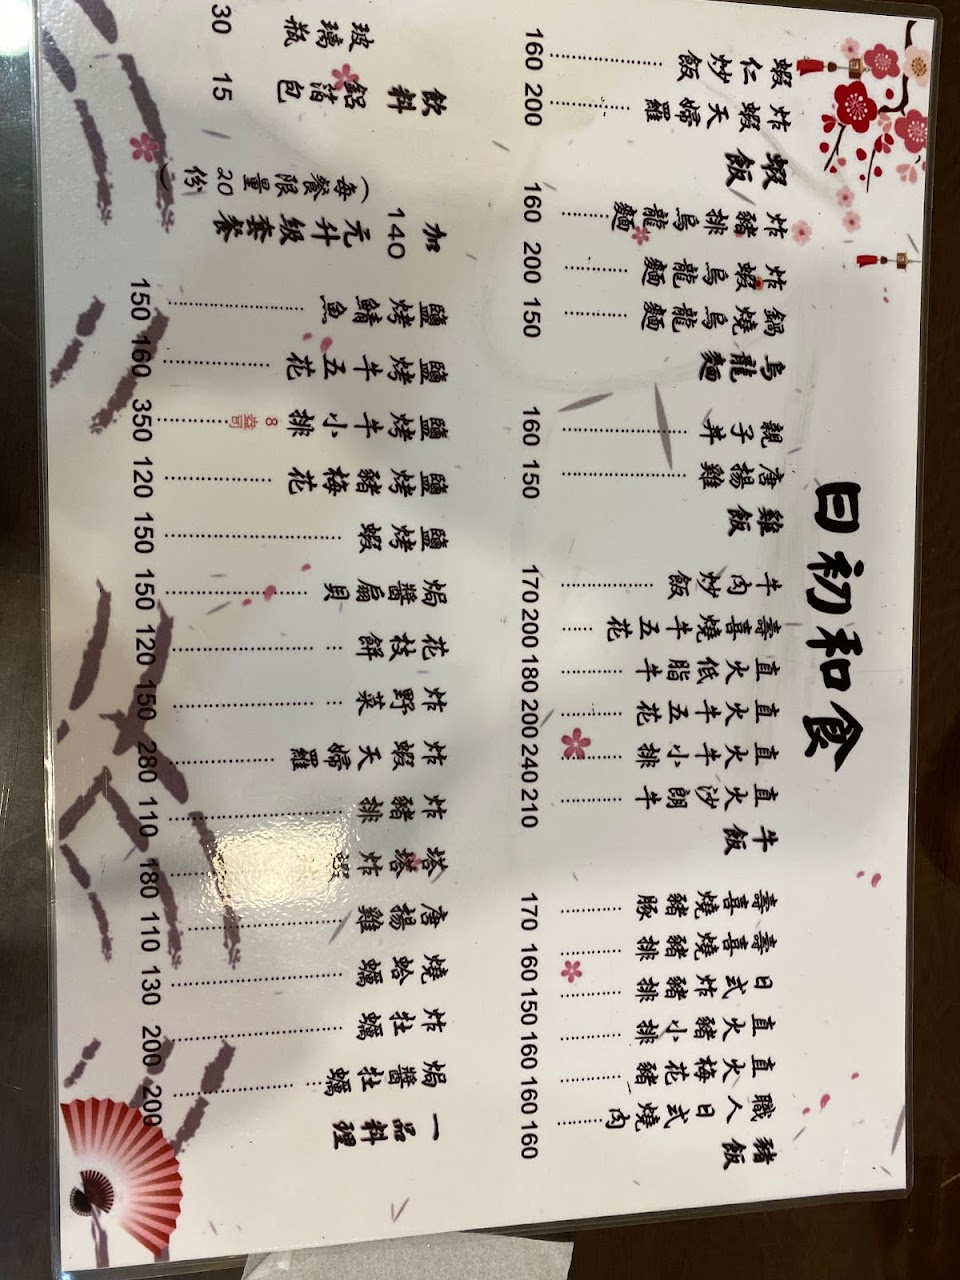 日初和食
豬飯
職人日式燒肉………160
直火梅花豬………160
直火豬小排………160
日式炸豬排………150
壽喜燒豬排………160
壽喜燒豬豚………170
牛飯
直火沙朗牛………210
直火牛小排………240
直火牛五花………200
直火低脂牛………180
壽喜燒牛五花……200
牛肉炒飯………170
雞飯
唐揚雞………150
親子丼………160
烏龍麵
鍋燒烏龍麵………150
炸蝦烏龍麵………200
炸豬排烏龍麵………160
蝦飯
炸蝦天婦羅………200
蝦仁炒飯………160
一品料理
焗醬牡蠣………200
炸牡蠣………200
燒蛤蠣………130
唐揚雞………110
塔塔炸蝦………180
炸豬排………110
炸蝦天婦羅………280
炸野菜………150
花枝餅………120
焗醬扇貝………150
鹽烤蝦………150
鹽烤豬梅花………120
鹽烤牛小排 8盎司………350
鹽烤牛五花………160
鹽烤鯖魚………150
加140元升級套餐
(每餐限量20份
飲料
鋁箔包 15
玻璃瓶 30